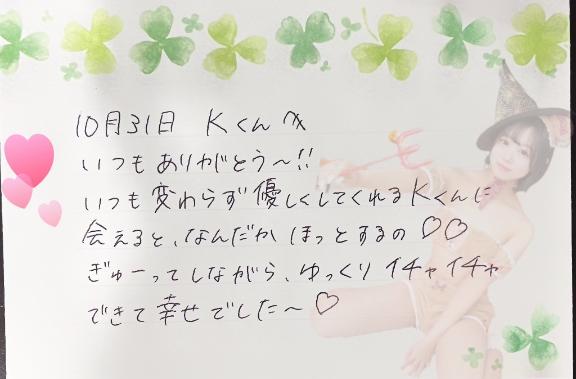 10月31日 Kくんへ
いつもありがとう〜!!
いつも変わらず優しくしてくれるKくんに
会えると、なんだかほっとするの♡♡
ぎゅーってしながら、ゆっくりイチャイチャ
できて幸せでした〜♡